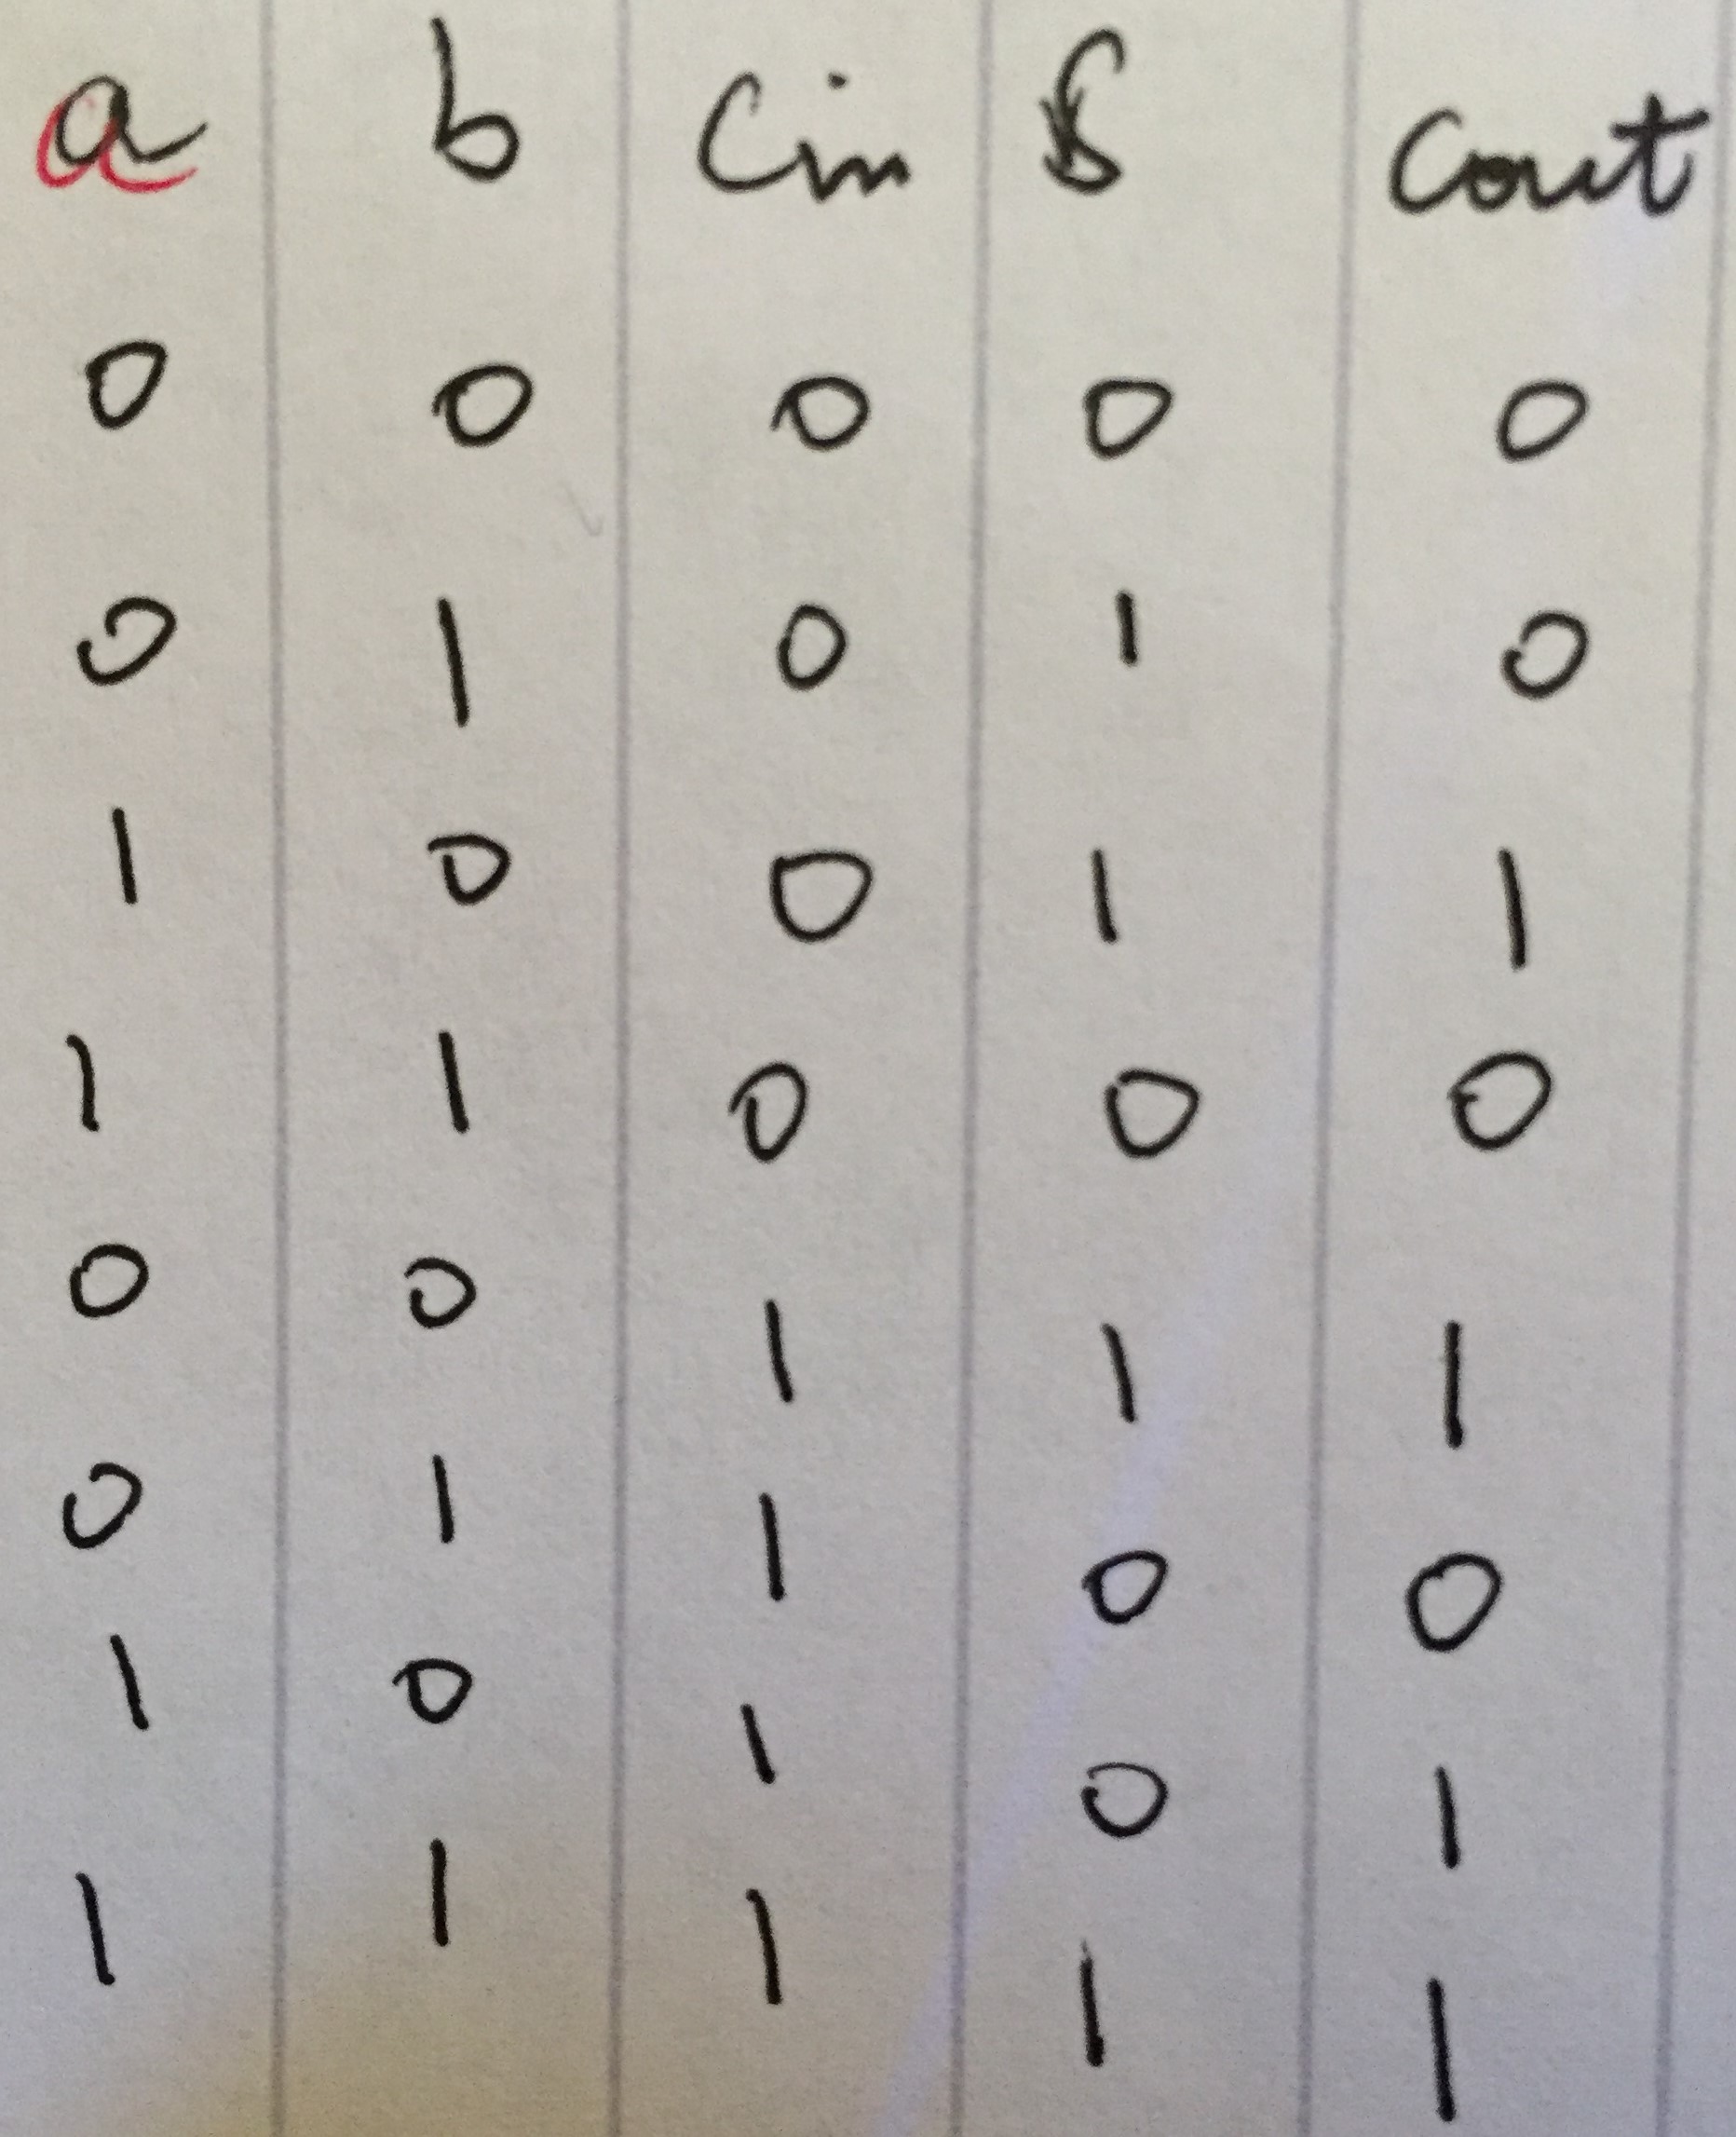 a b Cin S Cout
0 0 0 0 0
0 1 0 1 0
1 0 0 1 1
1 1 0 0 0
0 0 1 1 1
0 1 1 0 0
1 0 1 0 1
1 1 1 1 1